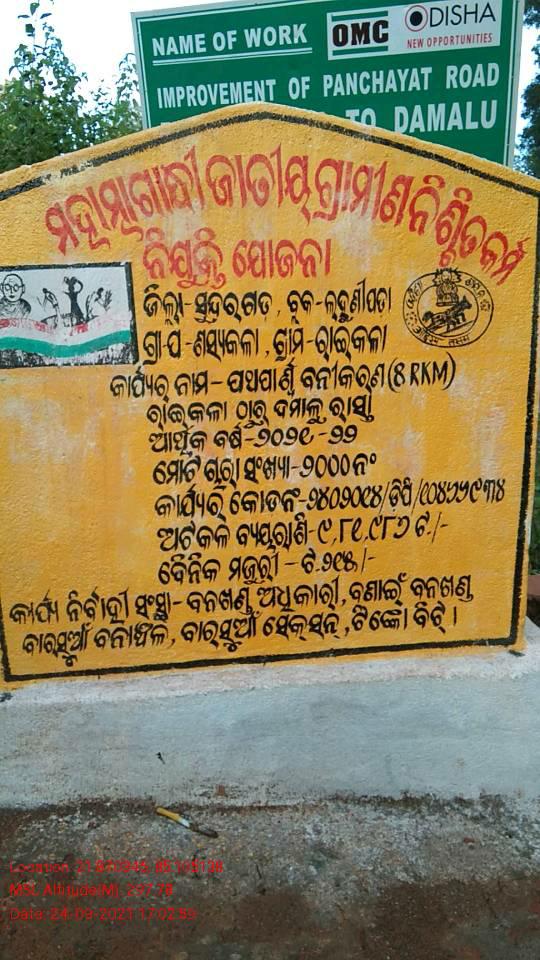 NAME OF WORK
OMC
ODISHA
NEW OPPORTUNITIES
IMPROVEMENT OF PANCHAYAT ROAD
TO DAMALU
ମହାତ୍ମାଗାନ୍ଧୀ ଜାତୀୟ ଗ୍ରାମୀଣ ନିଶ୍ଚିତ କର୍ମ
ନିଯୁକ୍ତି ଯୋଜନା
ଜିଲ୍ଲା-ସୁନ୍ଦରଗଡ, ବ୍ଲକ-ଲହୁଣୀପଡା
ଗ୍ରା-ପ-ଶସ୍ୟକଳା, ଗ୍ରାମ-ରାଇକଳା
କାର୍ଯ୍ୟର ନାମ-ପଥପାର୍ଶ୍ୱ ବନୀକରଣ(8 RKM)
ରାଇକଳା ଠାରୁ ଦମାଳୁ ରାସ୍ତା
ଆର୍ଥିକ ବର୍ଷ-୨୦୨୧-୨୨
ମୋଟ ଗଛରା ସଂଖ୍ୟା-୨୦୦୦ନଂ
କାର୍ଯ୍ୟର କୋଡନଂ-୨୪୦୨୦୧୪/ଡ଼ିପି/
ଅଟକଳ ବ୍ୟୟରାଶି-୯,୮୧,୯୮୬ ଟ./-
ଦୈନିକ ମଜୁରୀ-ଟ.୨୧୫/-
କାର୍ଯ୍ୟ ନିର୍ବାହୀ ସଂସ୍ଥା-ବନଖଣ୍ଡ ଅଧିକାରୀ, ବଣାଇଁ ବନଖଣ୍ଡ
ବାରସୁଆଁ ବନାଞ୍ଚଳ, ବାରସୁଆଁ ସେକ୍ସନ୍, ଟଙ୍କୋ ବିଟ୍।
MSL Altitude(M): 297.78
Date: 24-09-2021 17:02:59